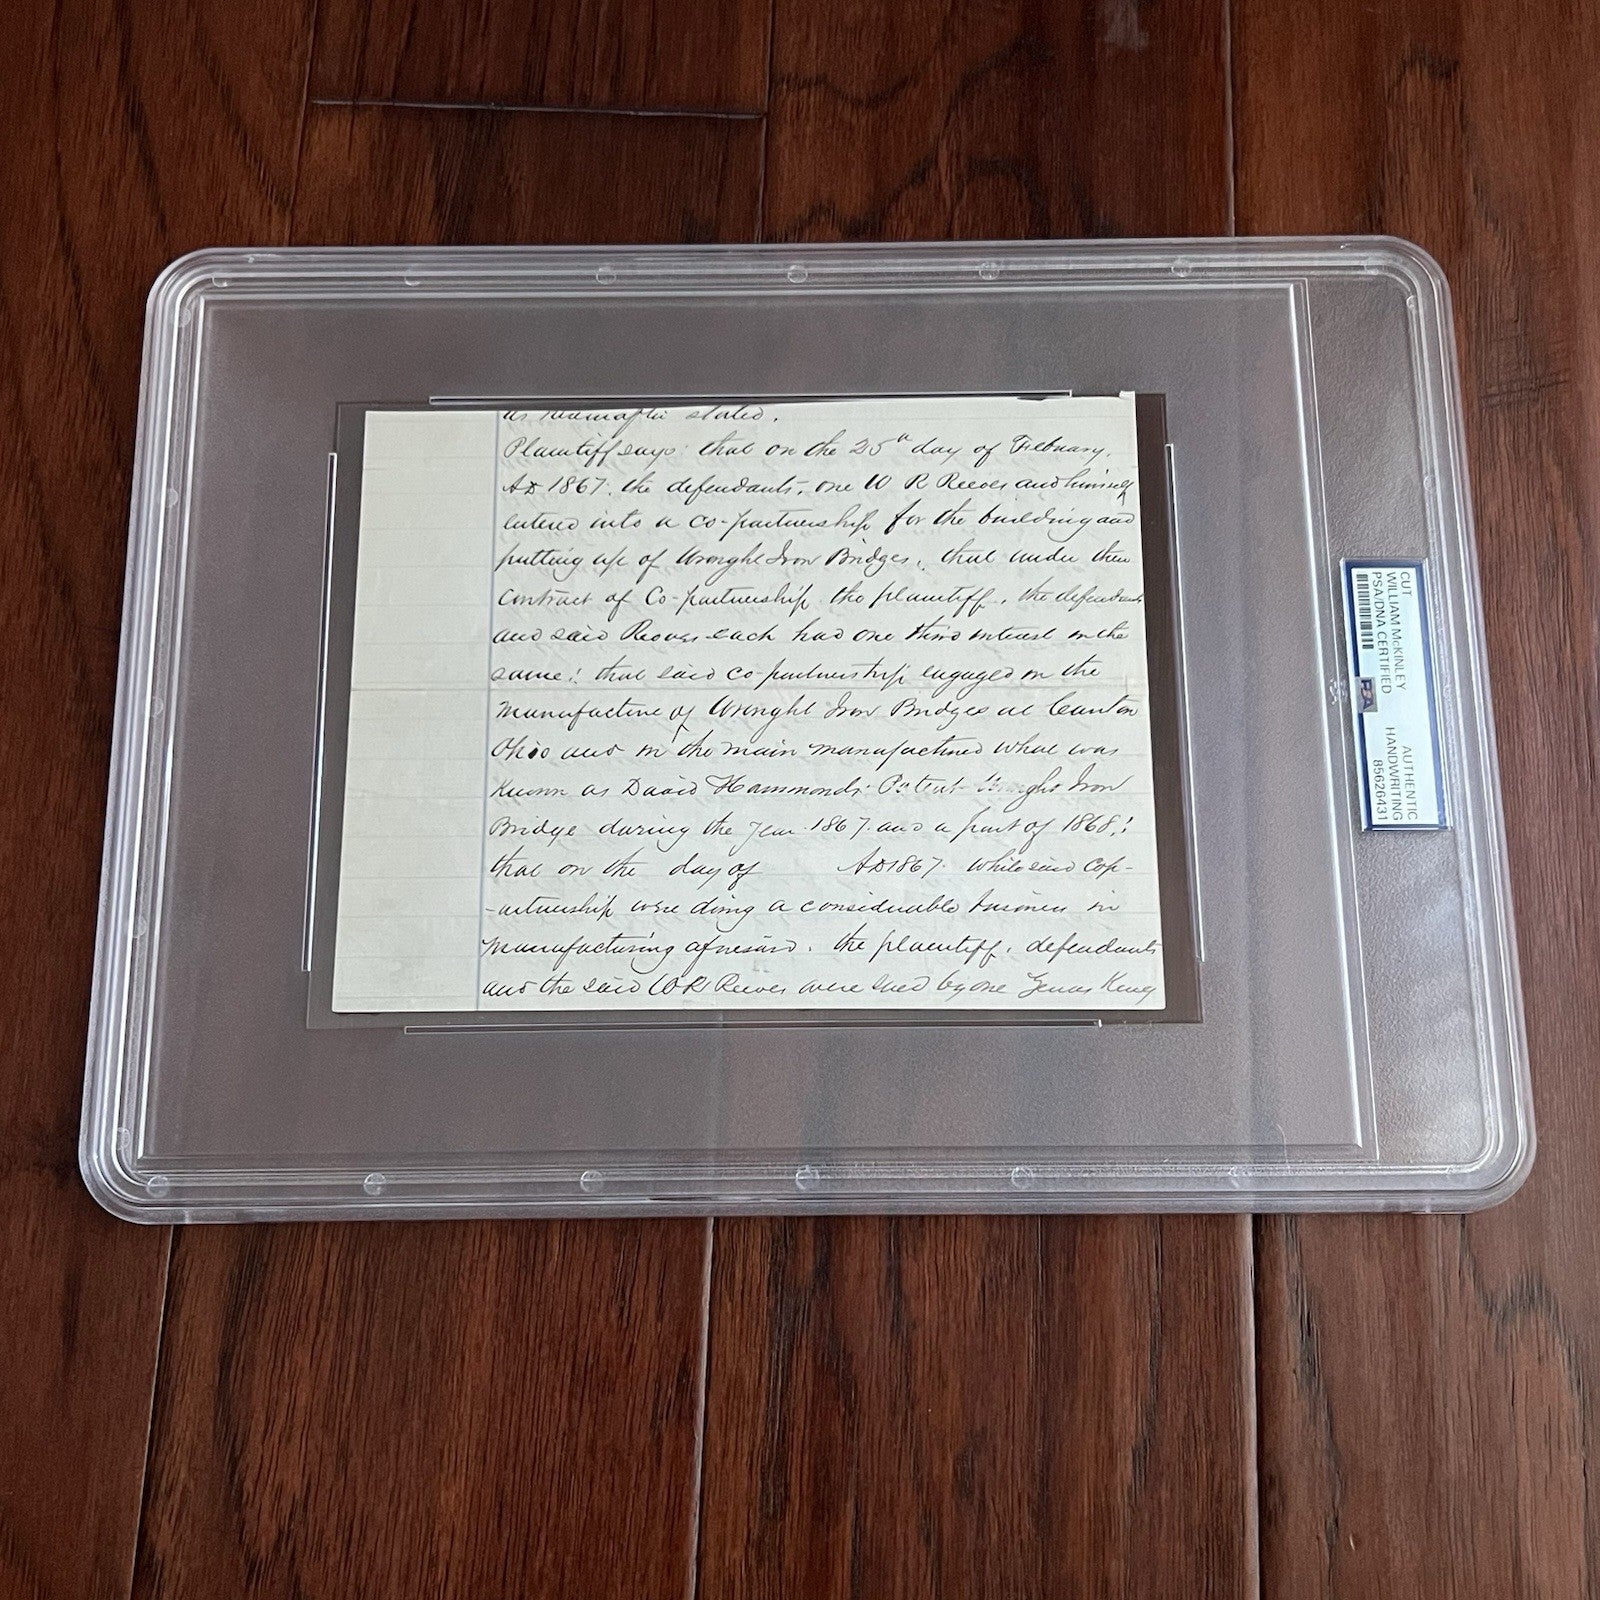 as hereinafter stated.
Plaintiff says: that on the 25th day of February,
AD 1867, the defendants, one W R Reeves and himself
entered into a co-partnership for the building and
putting up of Wrought Iron Bridges, that under their
Contract of Co-partnership the plaintiff, the defendants
and said Reeves each had one third interest in the
same; that said co-partnership engaged in the
Manufacture of Wrought Iron Bridges at Canton
Ohio and in the main manufactured what was
Known as David Hammonds Patent Wrought Iron
Bridge during the year 1867 and a part of 1868;
that on the day of AD 1867 while said Cop-
-artnership were doing a considerable business in
Manufacturing aforesaid, the plaintiff, defendants
and the said W R Reeves were sued by one Zenas King
CUT
WILLIAM McKINLEY
PSA/DNA CERTIFIED
PSA
AUTHENTIC
HANDWRITING
85626431